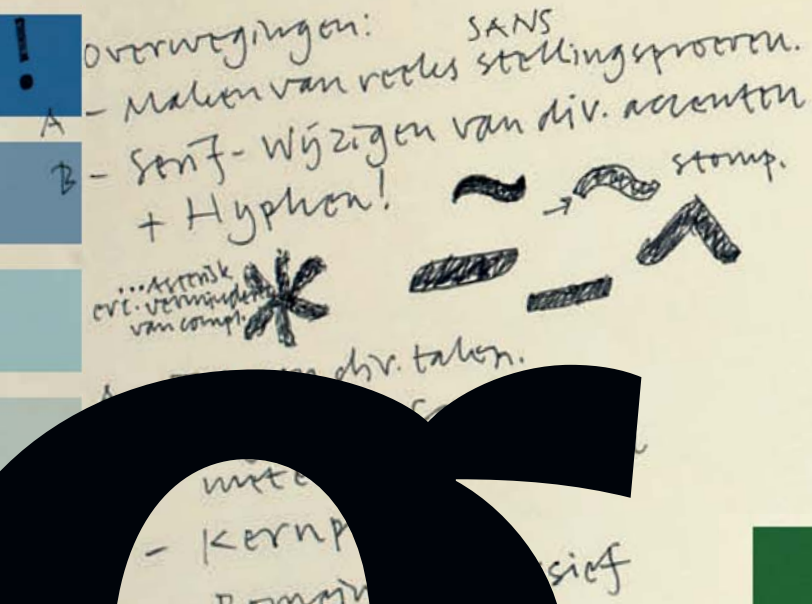 !
overwegingen:
SANS
A - Maken van reeks stellingsproeven.
B - Serif - Wijzigen van div. accenten
+ Hyphen!
stomp.
...Asterisk
evt. verminderen
van compl.
div. talen.
- Kernp
Romain sief